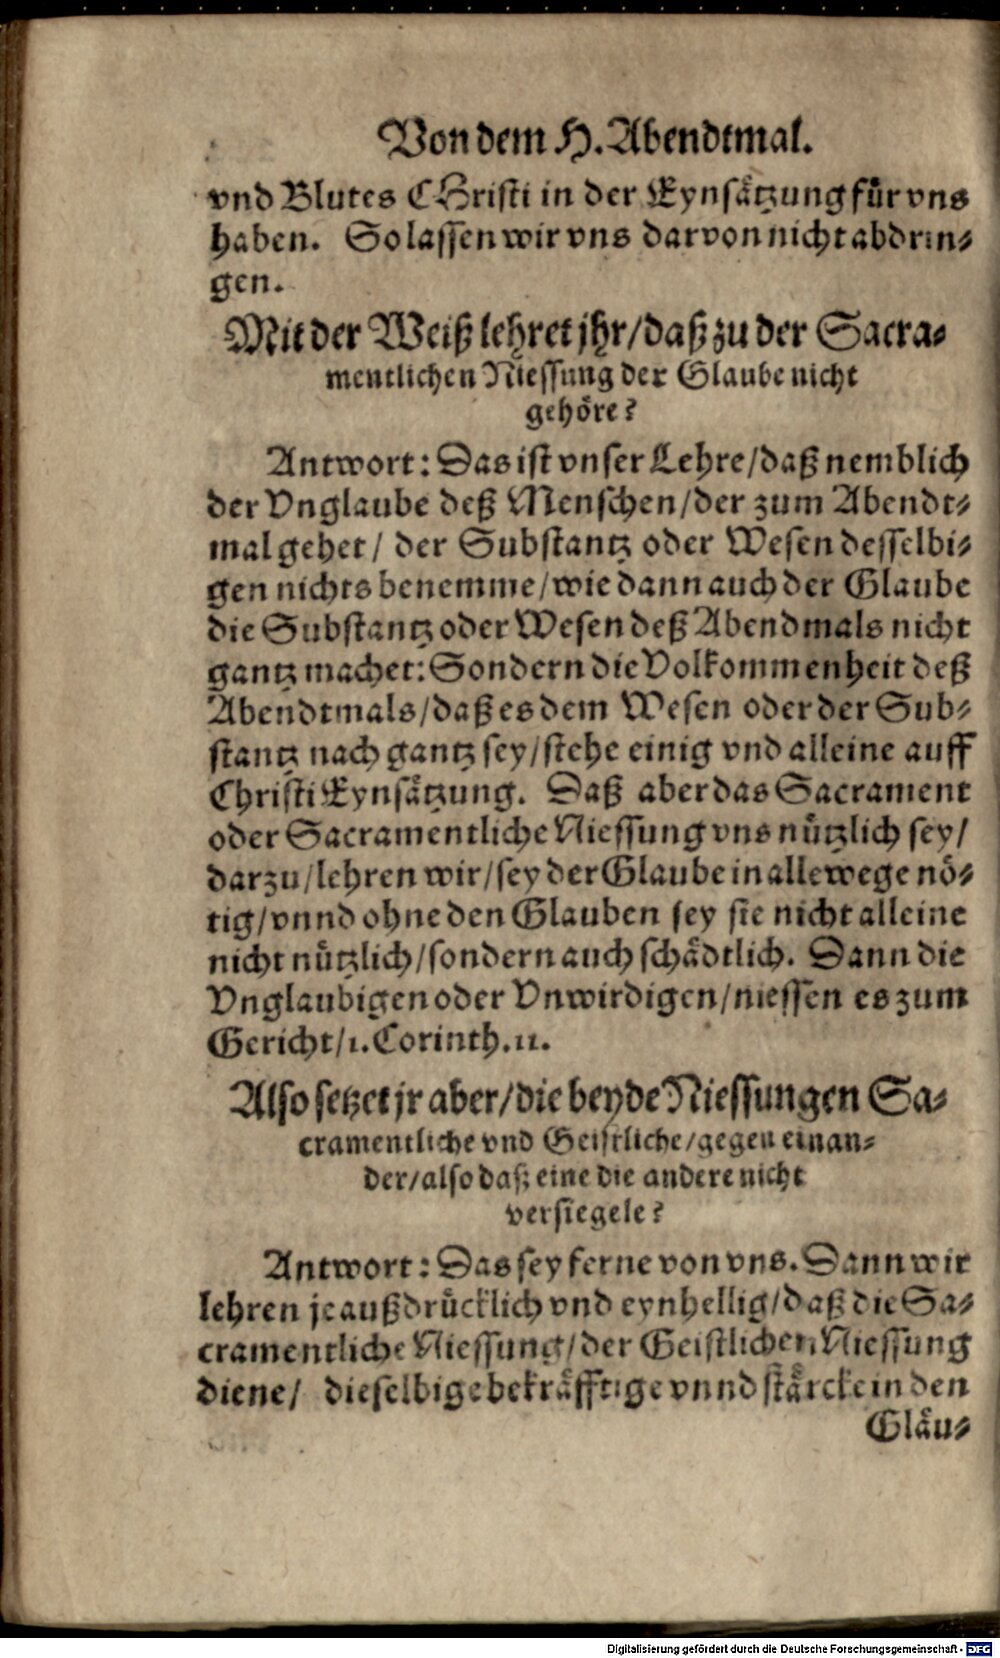 Von dem H. Abendtmal.
vnd Blutes CHristi in der Eynsätzung für vns
haben. So lassen wir vns darvon nicht abdrin-
gen.
Mit der Weiß lehret jhr/daß zu der Sacra-
mentlichen Niessung der Glaube nicht
gehöre?
Antwort: Das ist vnser Lehre/daß nemblich
der Vnglaube deß Menschen/der zum Abendt-
mal gehet/ der Substantz oder Wesen desselbi-
gen nichts benemme/wie dann auch der Glaube
die Substantz oder Wesen deß Abendmals nicht
gantz machet: Sondern die Volkommenheit deß
Abendtmals/daß es dem Wesen oder der Sub-
stantz nach gantz sey/stehe einig vnd alleine auff
Christi Eynsätzung. Daß aber das Sacrament
oder Sacramentliche Niessung vns nützlich sey/
darzu/lehren wir/sey der Glaube in allewege nö-
tig/vnnd ohne den Glauben sey sie nicht alleine
nicht nützlich/sondern auch schädtlich. Dann die
Vnglaubigen oder Vnwirdigen/niessen es zum
Gericht/1. Corinth. 11.
Also setzet jr aber/die beyde Niessungen Sa-
cramentliche vnd Geistliche/gegen einan-
der/also daß eine die andere nicht
versiegele?
Antwort: Das sey ferne von vns. Dann wir
lehren je außdrücklich vnd eynhellig/daß die Sa-
cramentliche Niessung/der Geistlichen Niessung
diene/ dieselbige bekräfftige vnnd stärcke in den
Gläu-
Digitalisierung gefördert durch die Deutsche Forschungsgemeinschaft - DFG